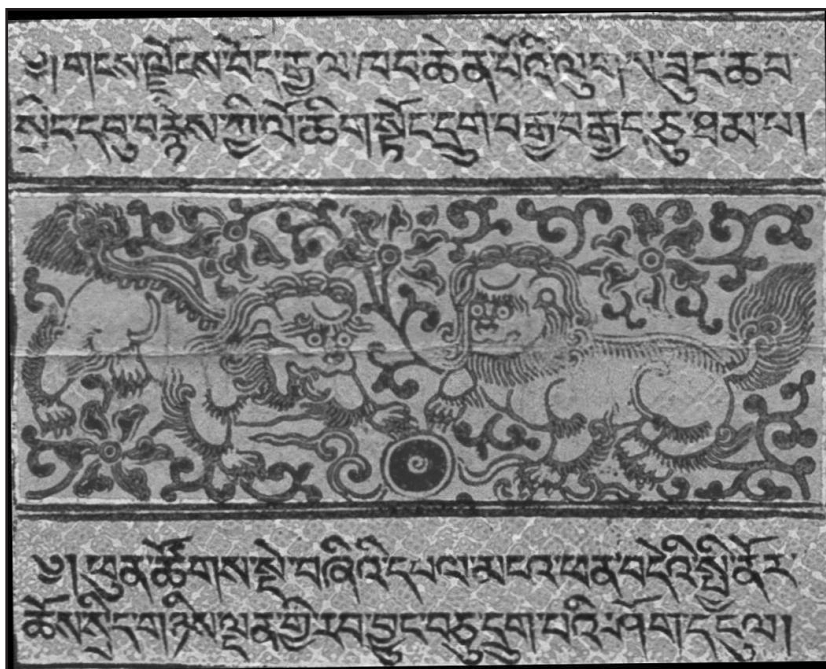 ༄། གངས་ལྗོངས་བོད་རྒྱལ་ཁབ་ཆེན་པོའི་ལུགས་ཟུང་ཆབ་
སྲིད་དབུ་བརྙེས་ཀྱི་ལོ་ཆིག་སྟོང་དྲུག་བརྒྱ་བརྒྱད་ཅུ་ཐམ་པ།
༄། ཕུན་ཚོགས་སྡེ་བཞིའི་དཔལ་མངའ་ཕན་བདེའི་སྤྱི་ནོར་
ཆོས་སྲིད་གཉིས་ལྡན་གྱི་རབ་བྱུང་བཅུ་དྲུག་པའི་ཤོག་དངུལ།